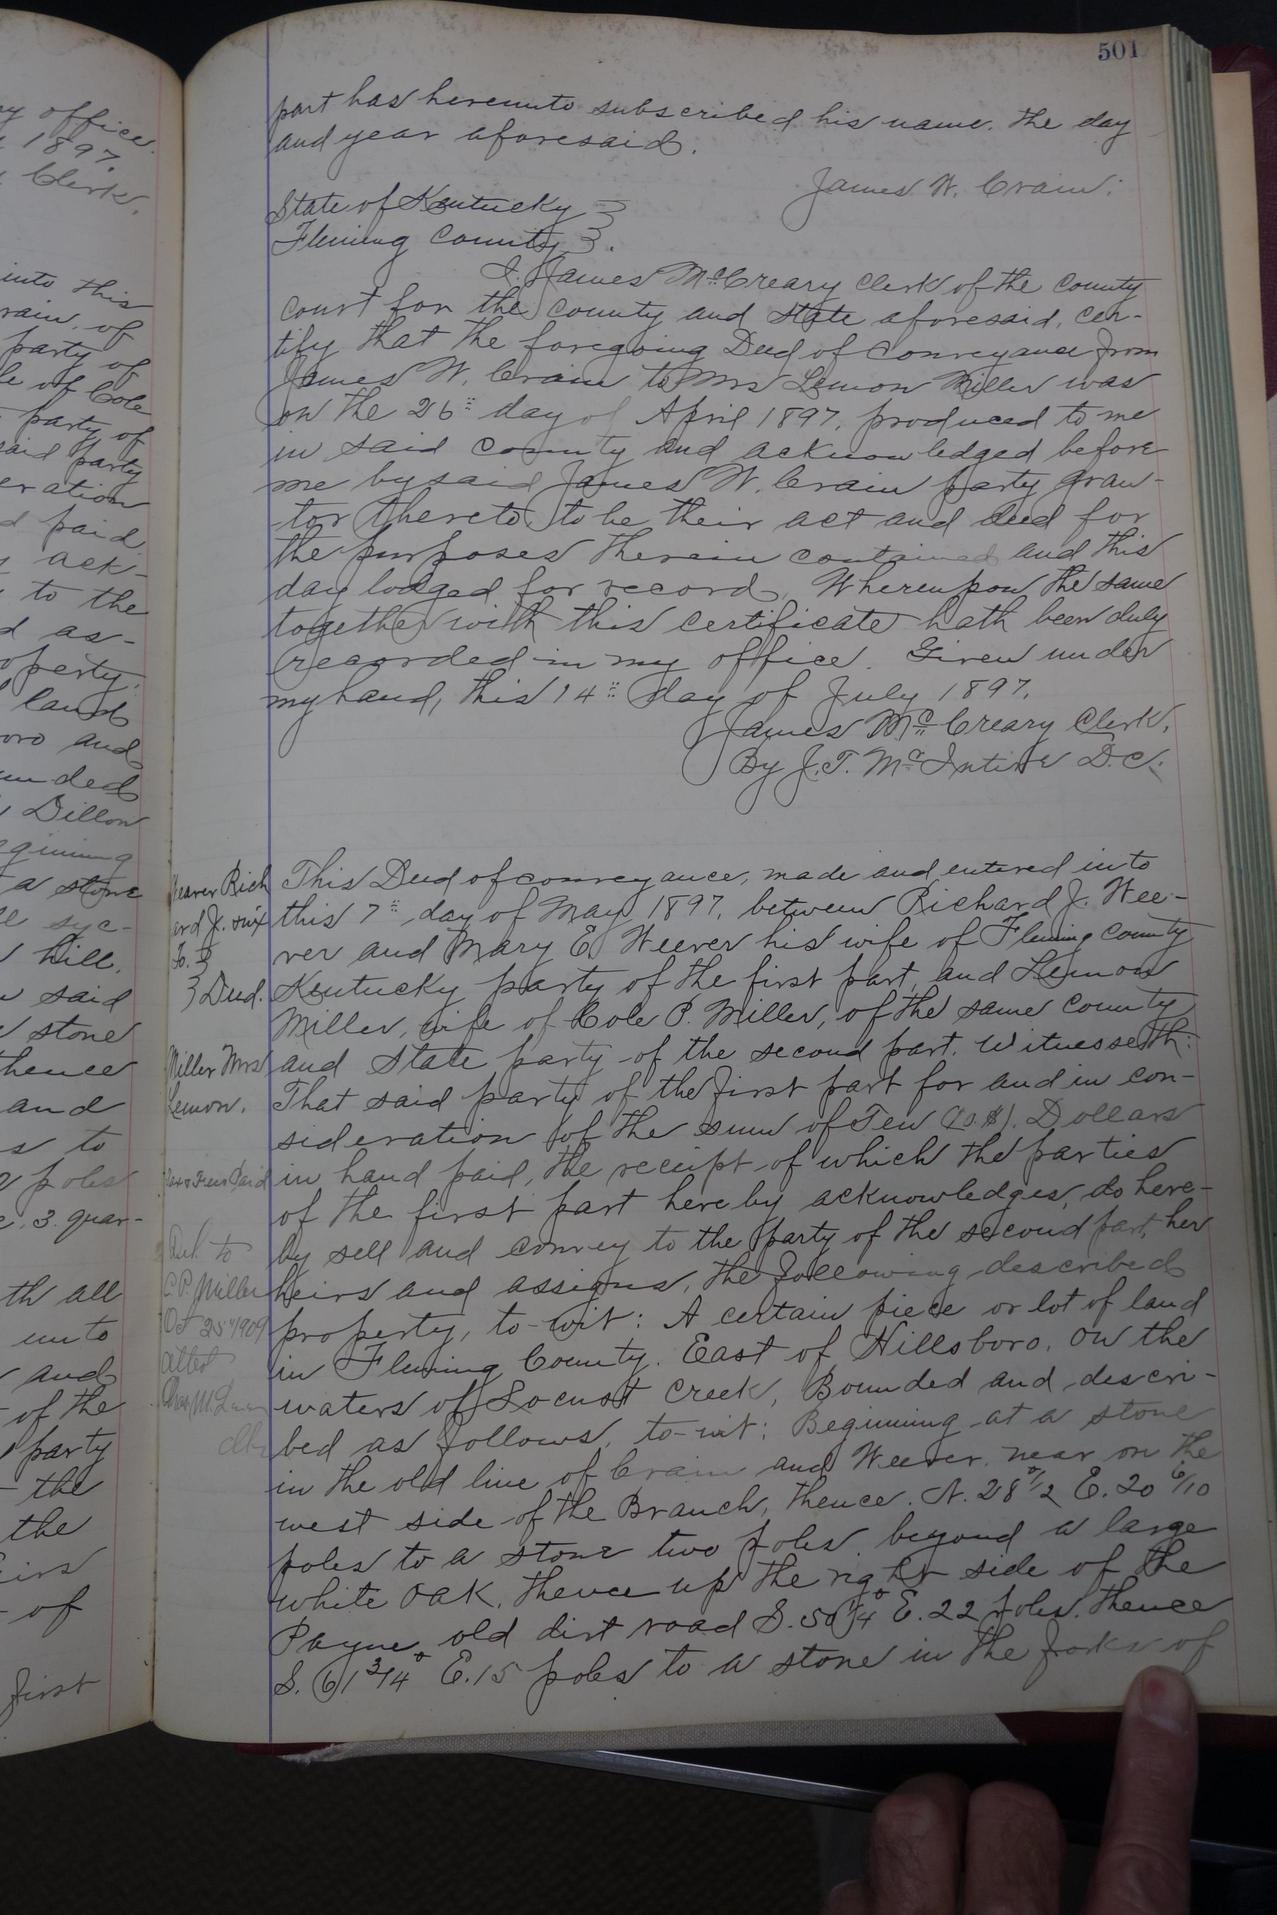 501
part has hereunto subscribed his name. the day
and year aforesaid.
James W. Crain.
State of Kentucky }
Fleming County }.
I. James McCreary Clerk of the County
court for the county and state aforesaid, cer-
tify that the foregoing Deed of conveyance from
James W. Crain to Mrs Lemon Miller was
on the 26" day of April 1897, produced to me
in said county and acknowledged before
me by said James W. Crain party gran-
tor thereto to be their act and deed for
the purposes therein contained and this
day lodged for record. Whereupon the same
together with this certificate hath been duly
recorded in my office. Given under
my hand, this 14" day of July 1897.
James McCreary Clerk.
By J. T. McIntire D.C.
Weaver Rich
ard J. &ux
To. }
} Deed.
Miller Mrs
Lemon.
Tax & Fees Paid
Del. to
C. P. Miller
Oct 25" 1909
attest
clk
This Deed of conveyance, made and entered into
this 7" day of May 1897, between Richard J. Wee-
ver and Mary E. Weever his wife of Fleming county
Kentucky party of the first part, and Lemon
Miller, wife of Cole P. Miller, of the same county
and State party of the second part. Witnesseth:
That said party of the first part for and in con-
sideration of the sum of Ten (10.$). Dollars
in hand paid, the receipt of which the parties
of the first part hereby acknowledges, do here-
by sell and convey to the party of the second part, her
heirs and assigns, the following described
property, to-wit: A certain piece or lot of land
in Fleming County. East of Hillsboro. On the
waters of Locust Creek, Bounded and descri-
bed as follows, to-wit: Beginning at a stone
in the old line of Crain and Weever, near on the
west side of the Branch, thence. N. 28°1/2 E. 20 6/10
poles to a stone two poles beyond a large
white oak, thence up the right side of the
Payne old dirt road S. 50 1/4° E. 22 poles. thence
S. 61 3/4° E. 15 poles to a stone in the forks of
ny office.
1897,
Clerk.
into this
rain, of
party of
le of Cole
party of
said party
eration
d paid
ack-
to the
d as-
operty,
land
oro and
unded
Dillon
ginning
a stone
syc-
hill,
said
stone
hence
and
s to
poles
3. quar-
th all
unto
and
of the
party
the
the
eirs
of
first